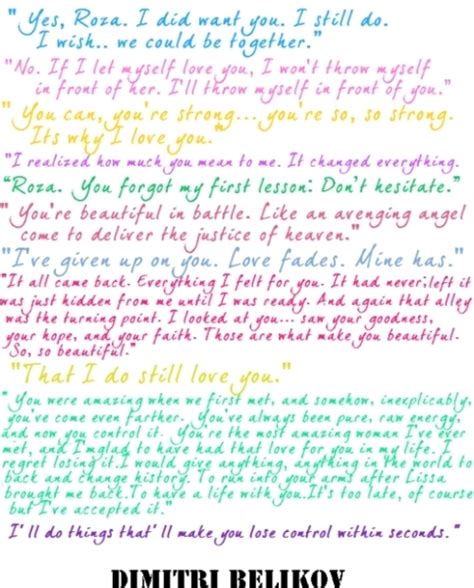 " Yes, Roza. I did want you. I still do.
I wish.. we could be together."
"No. If I let myself love you, I won't throw myself
in front of her. I'll throw myself in front of you."
" You can, you're strong... you're so, so strong.
Its why I love you."
"I realized how much you mean to me. It changed everything.
"Roza. You forgot my first lesson: Don't hesitate."
"You're beautiful in battle. Like an avenging angel
come to deliver the justice of heaven."
"I've given up on you. Love fades. Mine has."
"It all came back. Everything I felt for you. It had never left it
was just hidden from me until I was ready. And again that alley
was the turning point. I looked at you... saw your goodness,
your hope, and your faith. Those are what make you beautiful.
So, so beautiful."
"That I do still love you."
" You were amazing when we first met, and somehow, inexplicably,
you've come even farther. You've always been pure, raw energy,
and now you control it. You're the most amazing woman I've ever
met, and I'm glad to have had that love for you in my life. I
regret losing it.I would give anything, anything in the world to
back and change history. To run into your arms after Lissa
brought me back.To have a life with you.It's too late, of course
but I've accepted it."
I' ll do things that' ll make you lose control within seconds. "
DIMITRI BELIKOV